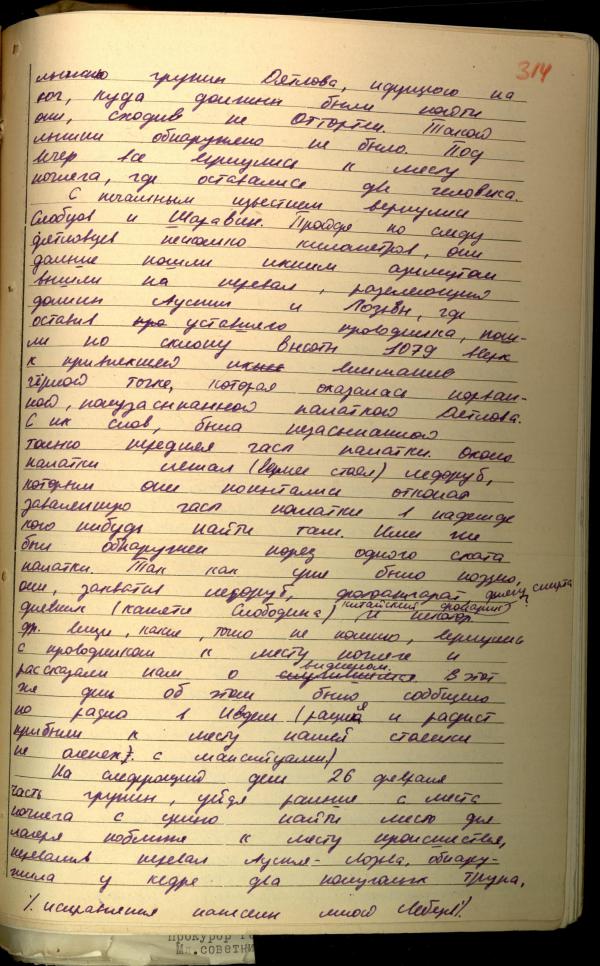 314
лыжню группы Дятлова, идущую на
юг, куда должны были пойти
они, сходив на Отортен. Такой
лыжни обнаружено не было. Под
вечер все вернулись к месту
ночлега, где оставались два человека.
С печальным известием вернулись
Слобцов и Шаравин. Пройдя по следу
дятловцев несколько километров, они
дальше пошли икним азимутом
вышли на перевал, разделяющий
долины Ауспии и Лозьвы, где
оставив про уставшего проводника, пош-
ли по склону высоты 1079 вверх
к привлекшей вниманию
чёрной точке, которая оказалась порван-
ной, полузасыпанной палаткой Дятлова.
С их слов, была незасыпанной
только передняя часть палатки. Около
палатки лежал (вернее стоял) ледоруб,
которым они попытались откопать
заваленную часть палатки в надежде
кого нибудь найти там. Ими же
был обнаружен порез одного ската
палатки. Так как уже было поздно,
они, захватив ледоруб, фотоаппарат, флягу спирта
дневник (кажется Слободина) китайский фонарик и некотор.
др. вещи, какие, точно не помню, вернулись
с проводником к месту ночлега и
рассказали нам о виденном. В этот
же день об этом было сообщено
по радио в Ивдель (рация и радист
прибыли к месту нашей стоянки
на оленях с мансийцами)
На следующий день 26 февраля
часть группы, уйдя раньше с места
ночлега с целью найти место для
лагеря поближе к месту происшествия,
перевалив перевал Ауспия-Лозьва, обнару-
жила у кедра два полуголых трупа,
/. исправления нанесены мною Лебедев/.
Прокурор
Мл.советни